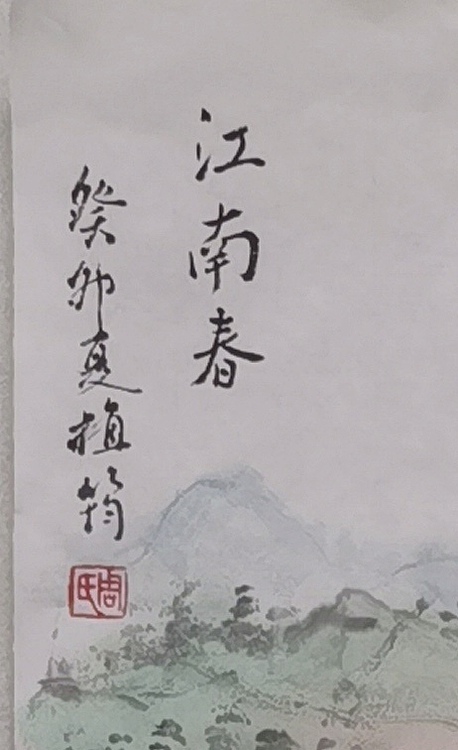 江南春
癸卯夏植筠
周氏